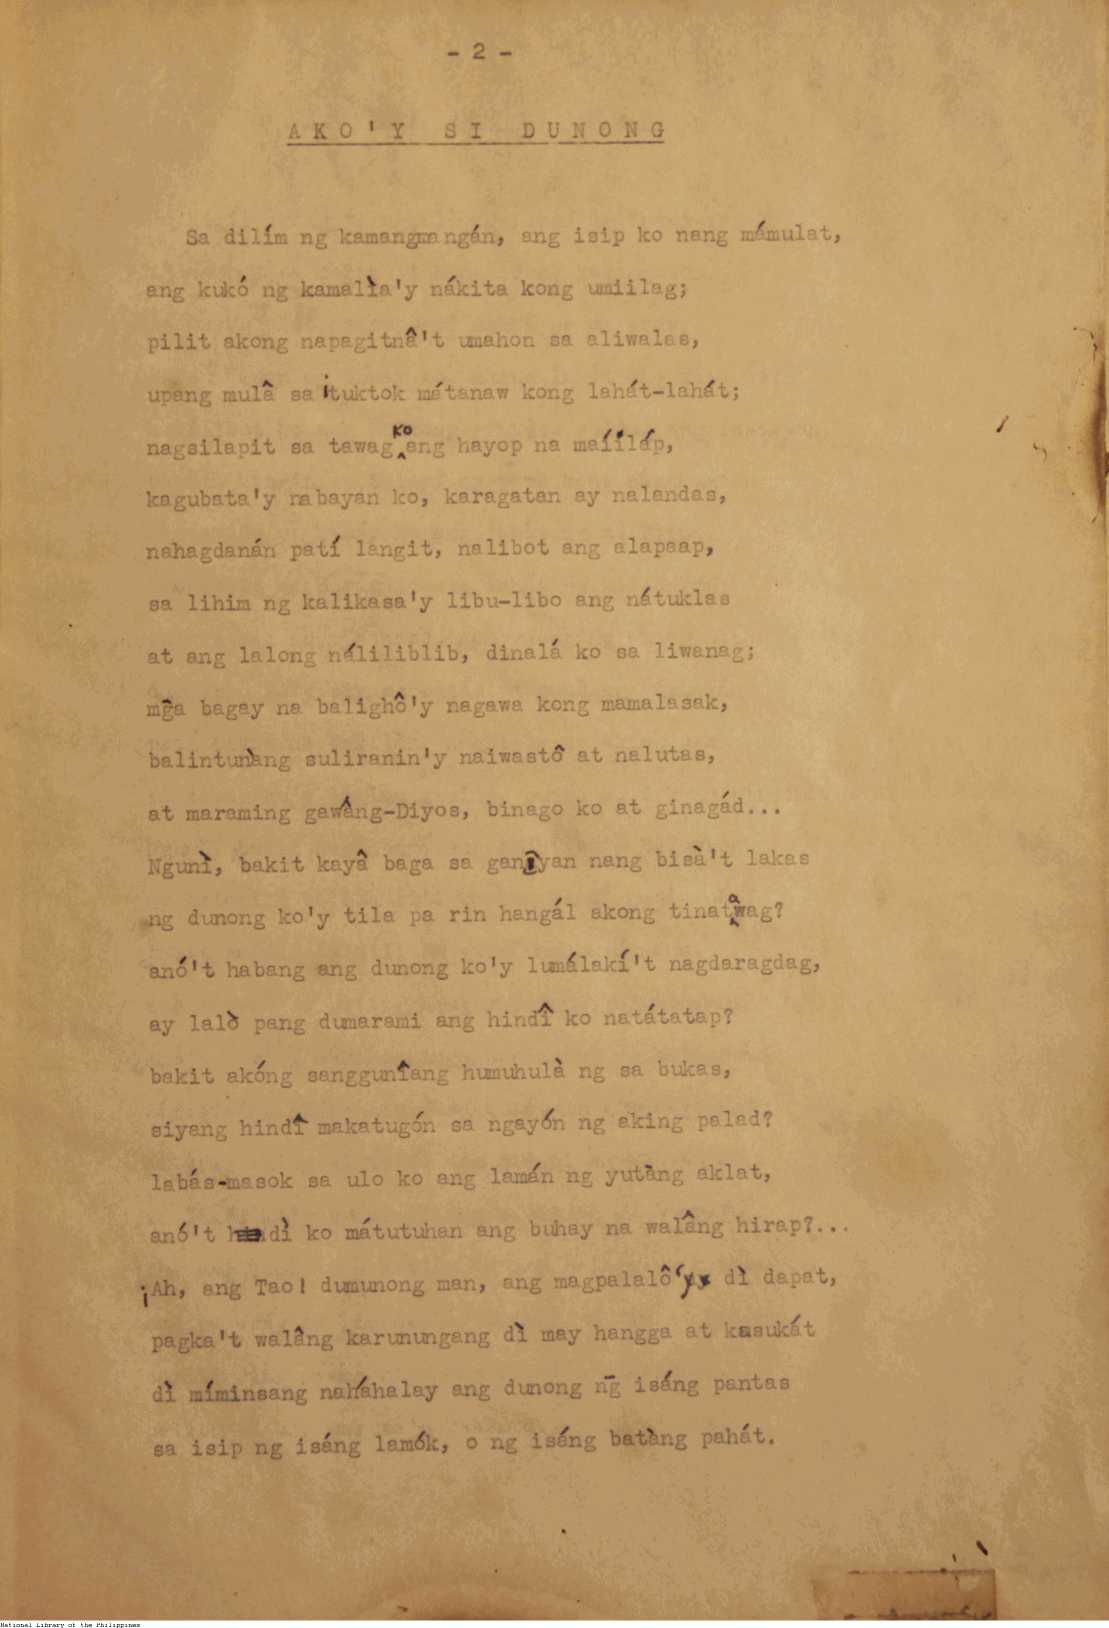 - 2 -
AKO'Y SI DUNONG
Sa dilím ng kamangmangán, ang isip ko nang mámulat,
ang kukó ng kamalìa'y nákita kong umiilag;
pilit akong napagitnâ't umahon sa aliwalas,
upang mulâ sa ituktok mátanaw kong lahát-lahát;
nagsilapit sa tawag ko ang hayop na maíiláp,
kagubata'y nabayan ko, karagatan ay nalandas,
nahagdanán patí langit, nalibot ang alapaap,
sa lihim ng kalikasa'y libu-libo ang nátuklas
at ang lalong náliliblib, dinalá ko sa liwanag;
mg̃a bagay na balighô'y nagawa kong mamalasak,
balintunàng suliranin'y naiwastô at nalutas,
at maraming gawâng-Diyos, binago ko at ginagád...
Ngunì, bakit kayâ baga sa ganiyan nang bisà't lakas
ng dunong ko'y tila pa rin hangál akong tinatawag?
anó't habang ang dunong ko'y lumálakí't nagdaragdag,
ay lalò pang dumarami ang hindî ko natátatap?
bakit akóng sanggunîang humuhulà ng sa bukas,
siyang hindî makatugón sa ngayón ng aking palad?
labás-masok sa ulo ko ang lamán ng yutàng aklat,
anó't dì ko mátutuhan ang buhay na walâng hirap?...
¡Ah, ang Tao! dumunong man, ang magpalalô'y dì dapat,
pagka't walâng karunungang dì may hangga at kasukát
dì míminsang naháhalay ang dunong ng̃ isáng pantas
sa isip ng isáng lamók, o ng isáng batàng pahát.
National Library of the Philippines